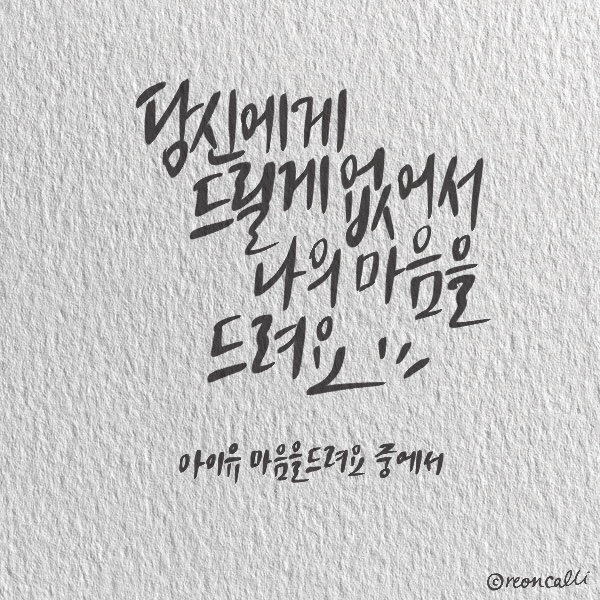 당신에게
드릴게 없어서
나의 마음을
드려요
아이유 마음을드려요 중에서
©reoncalli